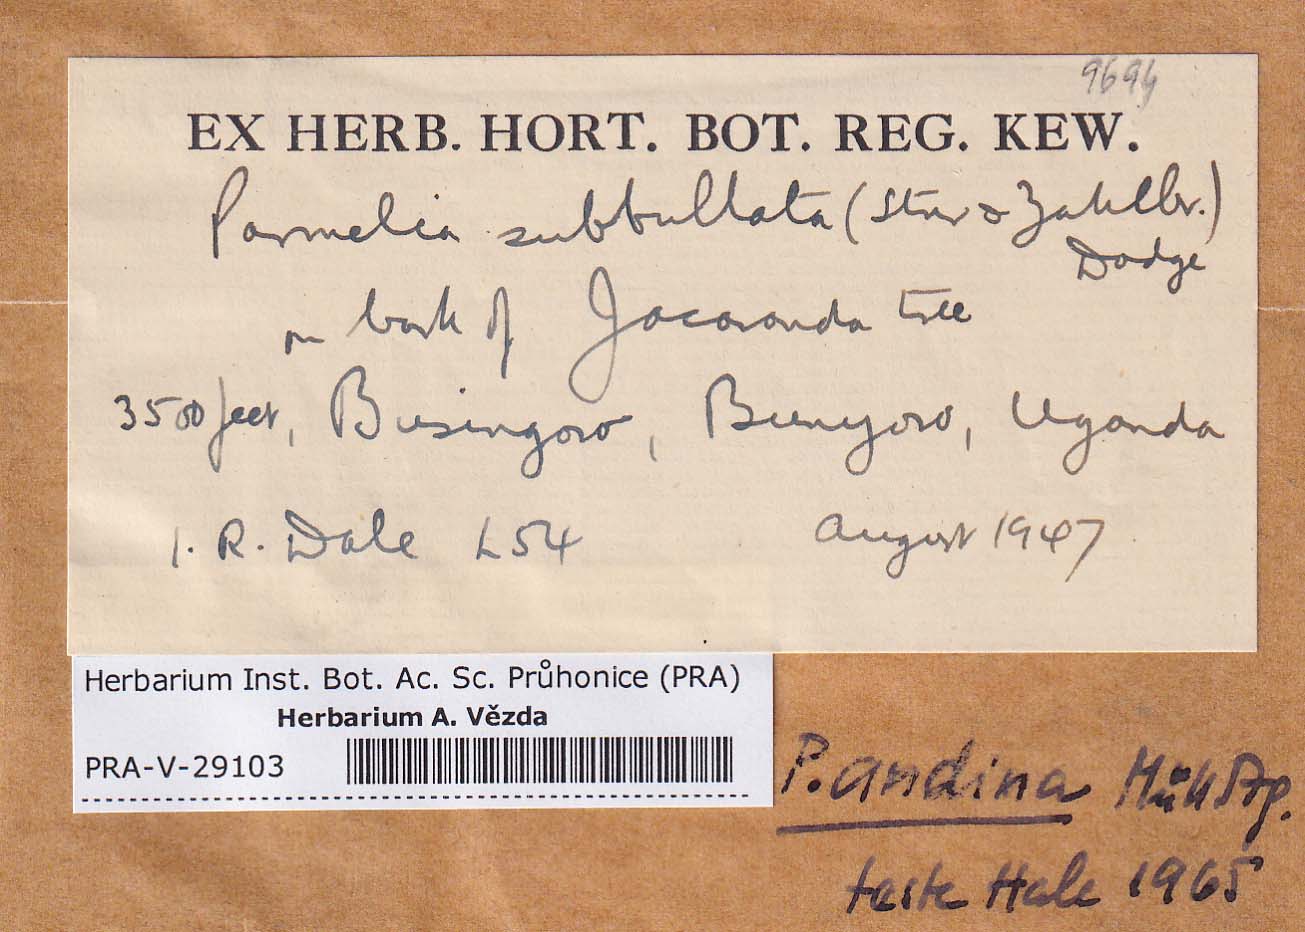 9694
EX HERB. HORT. BOT. REG. KEW.
Parmelia subbullata (Stnr & Zahlbr.)
Dodge
on bark of Jacaranda tree
3500 feet, Busingoro, Bunyoro, Uganda
I. R. Dale L54 August 1947
Herbarium Inst. Bot. Ac. Sc. Průhonice (PRA)
Herbarium A. Vězda
PRA-V-29103
P. andina Müll Arg.
teste Hale 1965